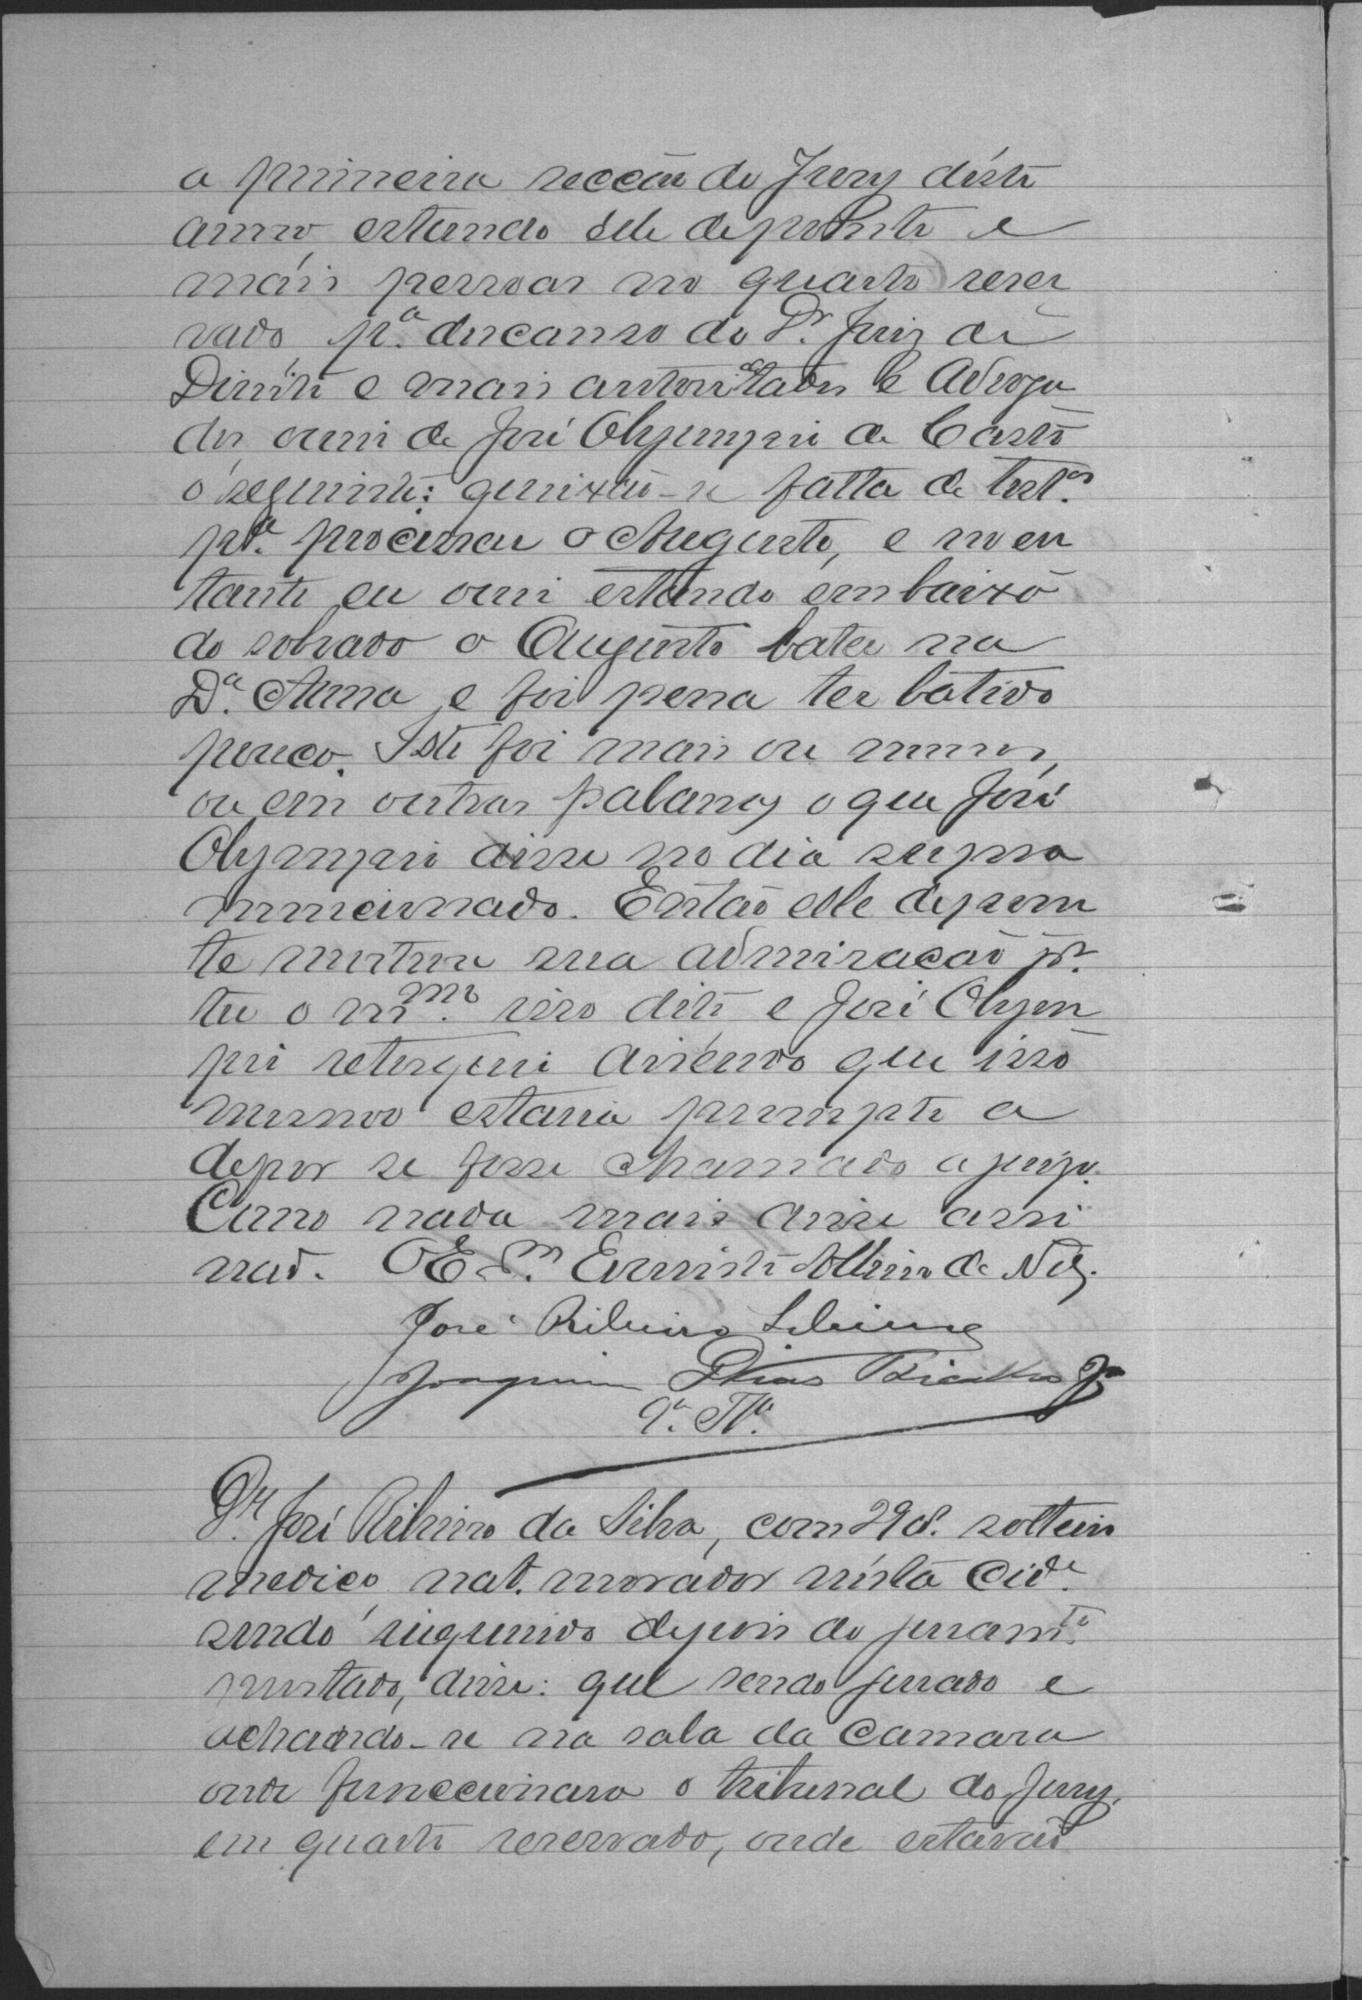 a primeira secção do Jury déste
anno, estando elle depoente e
máis pessoas no quarto reser
vado p.ª descanso do D.r Juiz de
Direito e mais autoridades e Advoga
dos, ouvi de José Olympio de Castro
o seguinte: queixão-se falta de test.as
p.ª processar o Augusto, e no en
tanto eu ouvi estando em baixo
do sobrado o Augusto bater na
D.ª Anna e foi pena ter batido
pouco. Isto foi mais ou menos,
ou em outras palavras o que José
Olympio disse no dia supra
mencionado. Então elle depoen
te mostrou sua admiração p.r
ter o m.mo isso dito e José Olym
pio retorquio dizendo que isso
mesmo estaria prompto a
depor se fosse chamado a juizo.
Como nada mais disse assi
nad. O E.am Evaristo de N.es.
José Ribeiro
Joaquim Dias J.or
9.ª T.ª
D.r José Ribeiro da Silva, com 29 a. solteiro
medico, nat. morador nésta Cid.e
sendo inquerido depois do juram.to
prestado, disse: que sendo jurado e
achando-se na sala da Camara
onde funccionava o tribunal do Jury,
em quarto reservado, onde estavão